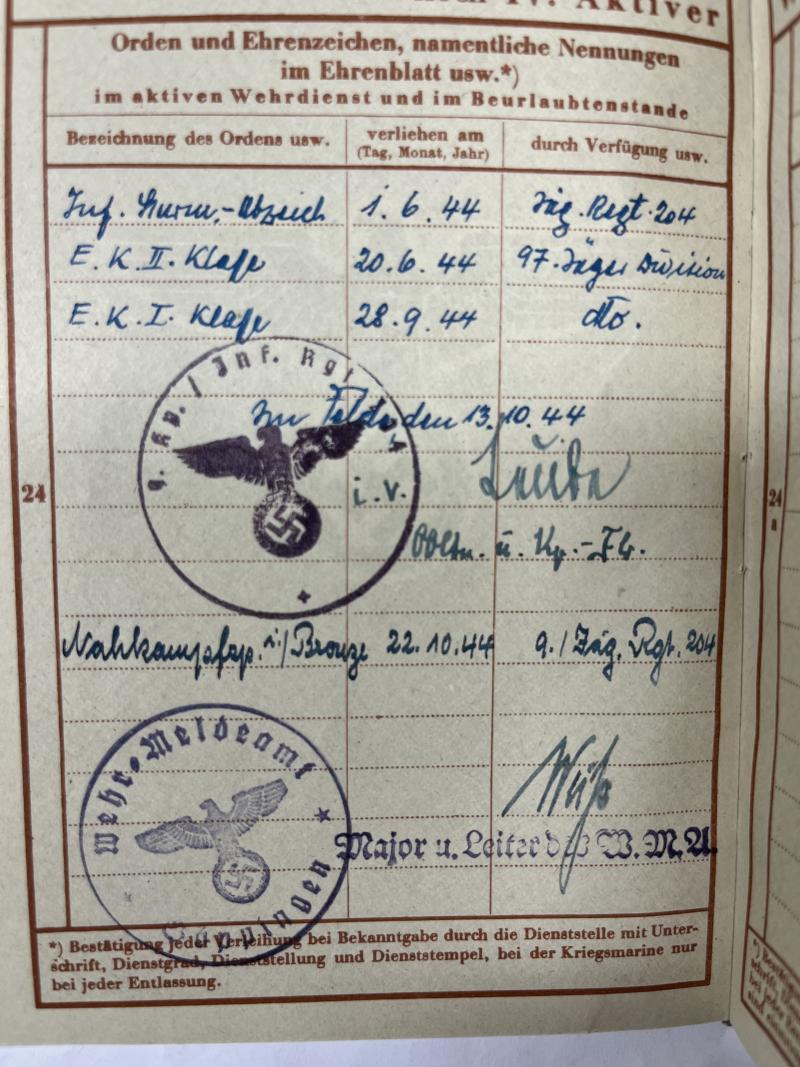 IV. Aktiver
Orden und Ehrenzeichen, namentliche Nennungen
im Ehrenblatt usw.*)
im aktiven Wehrdienst und im Beurlaubtenstande
Bezeichnung des Ordens usw. verliehen am (Tag, Monat, Jahr) durch Verfügung usw.
Inf. Sturm-Abzeich 1. 6. 44 Jäg. Regt. 204
E. K. II. Klaße 20. 6. 44 97. Jäger Division
E. K. I. Klaße 28. 9. 44 dto.
Inf. Rgt
Im Felde, den 13. 10. 44
24
i. V.
Obltn. u. Kp.-Fh.
Nahkampfsp. i/Bronze 22. 10. 44 9. / Jäg. Rgt. 204
Wehr-Meldeamt
Major u. Leiter des W.M.A.
*) Bestätigung jeder Verleihung bei Bekanntgabe durch die Dienststelle mit Unter-
schrift, Dienstgrad, Dienststellung und Dienststempel, bei der Kriegsmarine nur
bei jeder Entlassung.
24
a